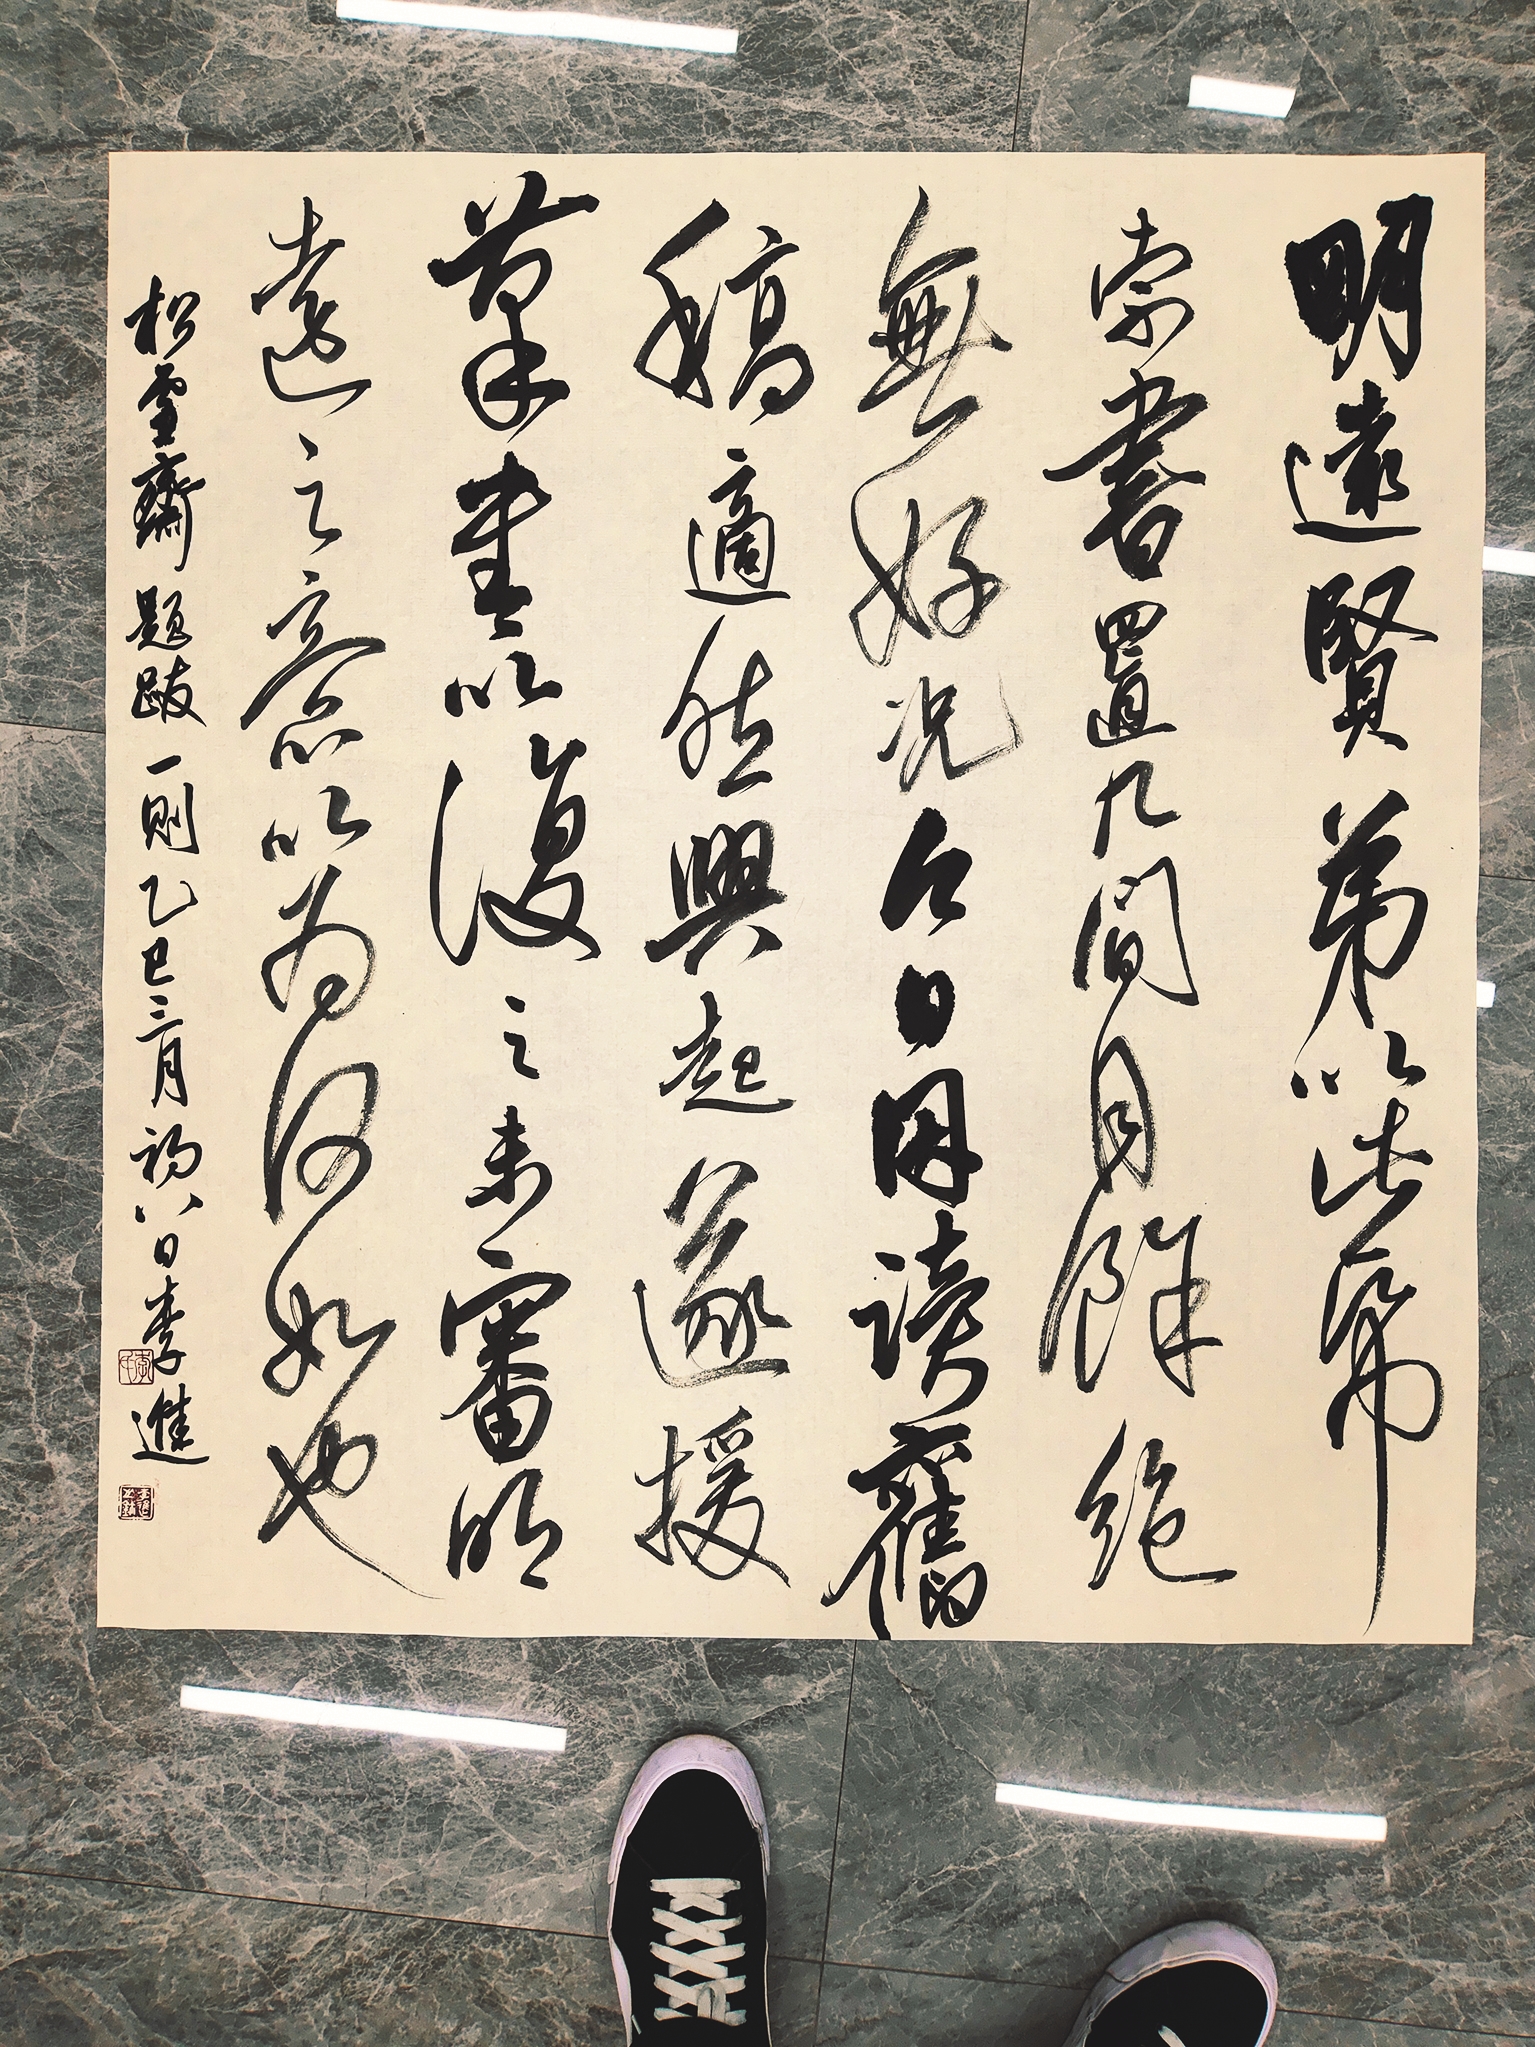 明遠賢弟以此帋
索書置几間月餘絶
無好况今日因讀舊
稿適然興起遂援
筆書以復之未審明
遠之意以為何如也
松雪齋題跋一則乙巳三月初八日李進